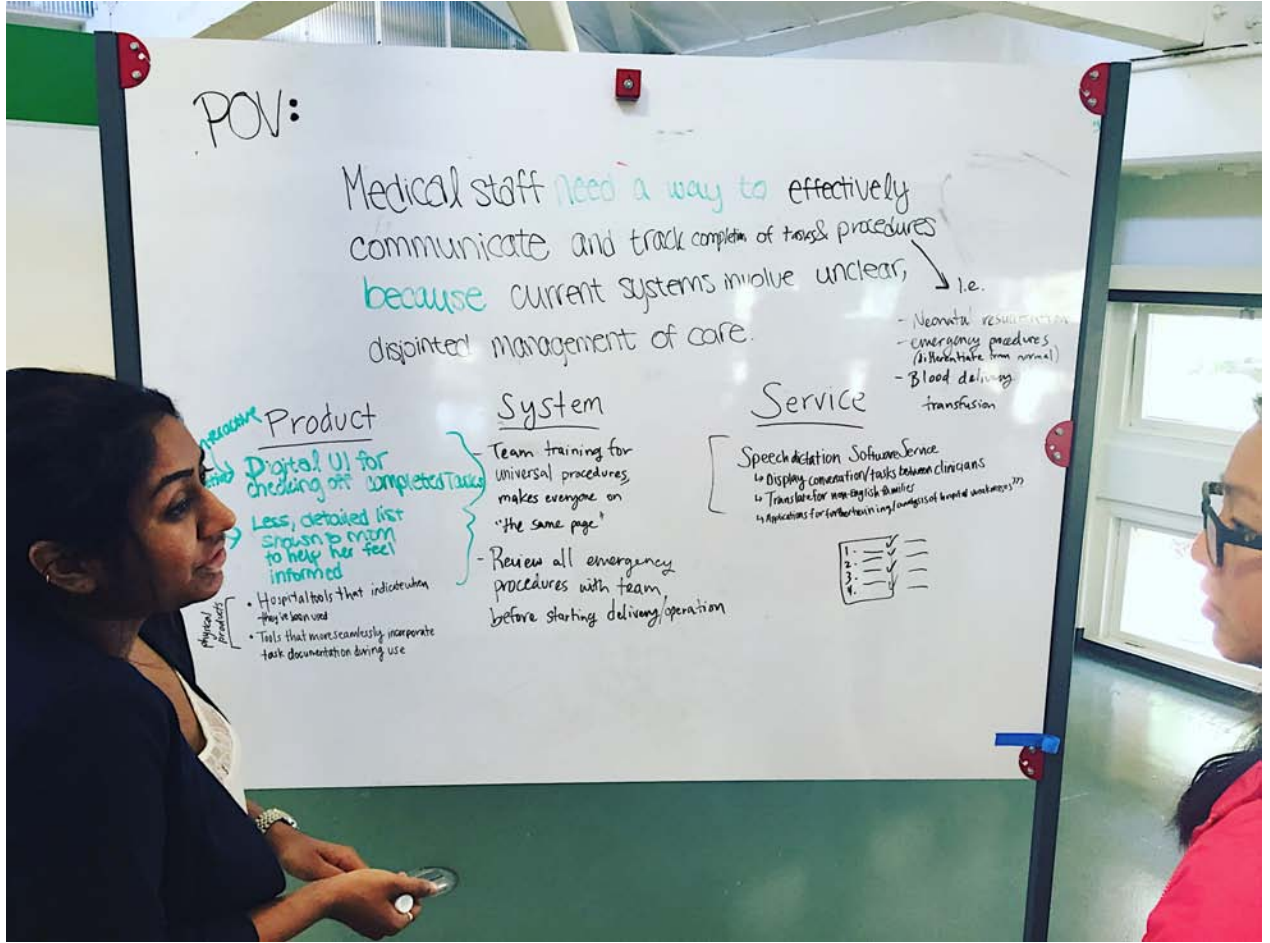 POV:
Medical staff need a way to effectively
communicate and track completion of tasks & procedures
because current systems involve unclear,
disjointed management of care.
i.e.
- Neonatal resuscitation
- emergency procedures
(differentiate from normal)
- Blood delivery
transfusion
Product
Digital UI for
checking off completed Tasks
Less, detailed list
shown to mom
to help her feel
informed
physical
products
• Hospital tools that indicate when
they've been used
• Tools that more seamlessly incorporate
task documentation during use
System
- Team training for
universal procedures,
makes everyone on
"the same page"
- Review all emergency
procedures with team
before starting delivery/operation
Service
Speech dictation Software Service
↳ Display conversation/tasks between clinicians
↳ Translate for non-English families
↳ Applications for further training/analysis of hospital weaknesses???
1.
2.
3.
4.